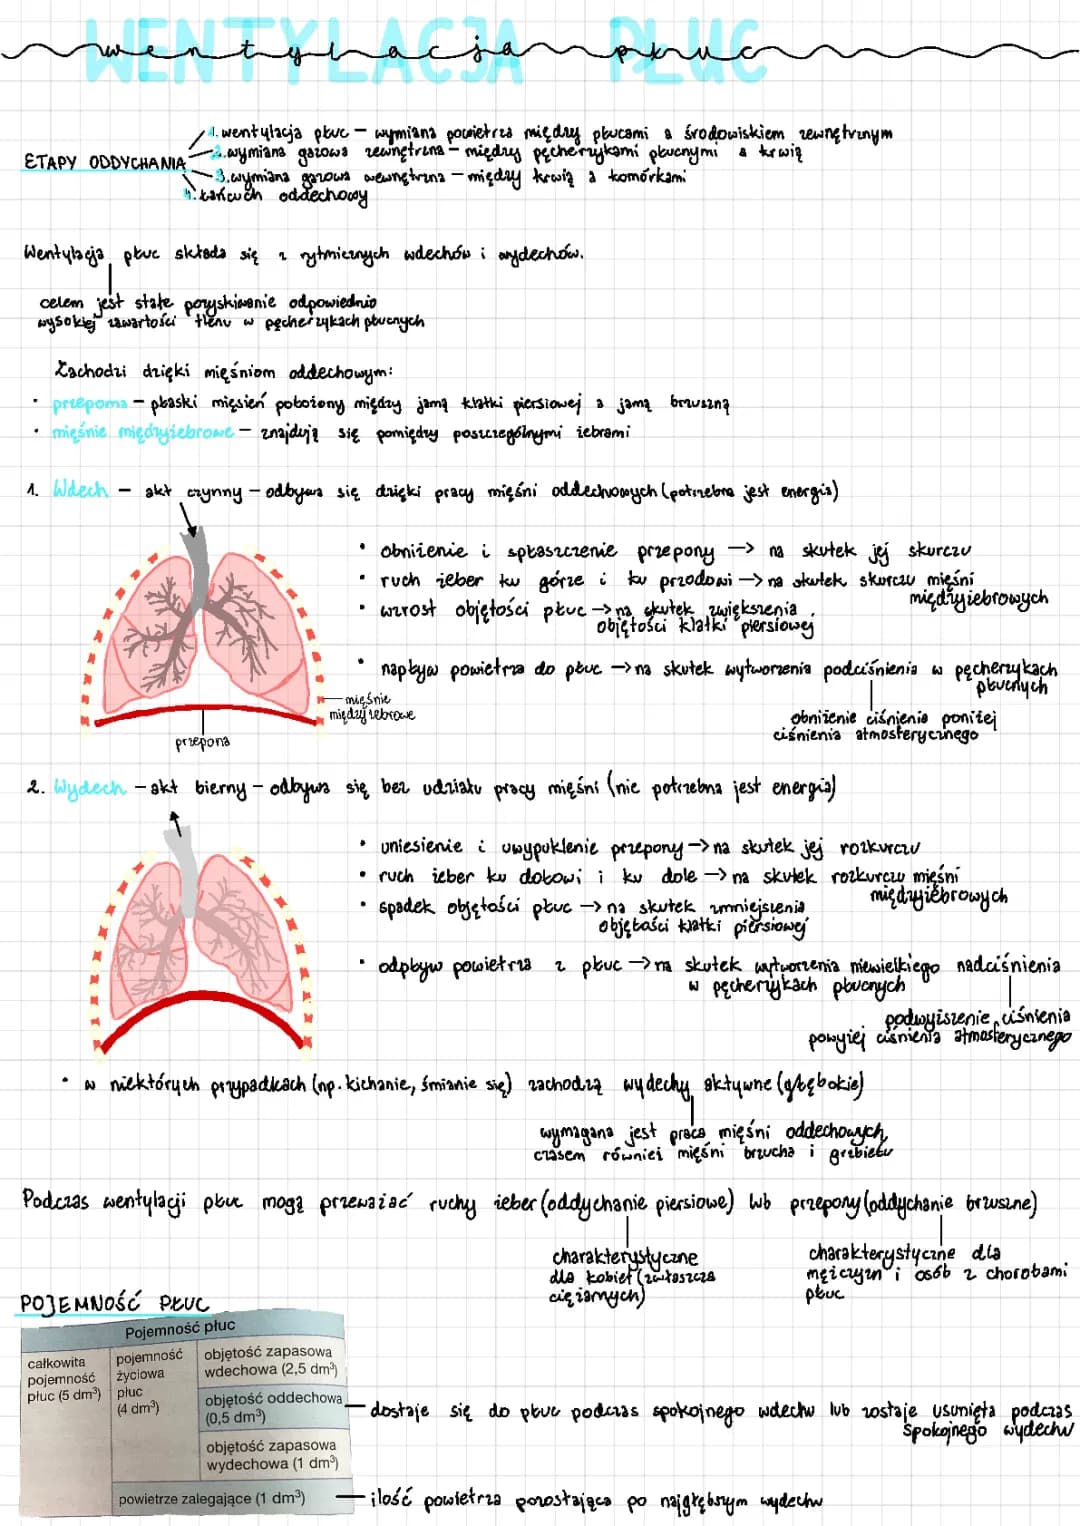 WENTYLACJA PŁUC
wentylacja płuc
ETAPY ODDYCHANIA
1. wentylacja płuc – wymiana powietrza między płucami a środowiskiem zewnętrznym
2. wymiana gazowa zewnętrzna – między pęcherzykami płucnymi a krwią
3. wymiana gazowa wewnętrzna – między krwią a komórkami
4. łańcuch oddechowy
Wentylacja płuc składa się z rytmicznych wdechów i wydechów.
celem jest stałe pozyskiwanie odpowiednio
wysokiej zawartości tlenu w pęcherzykach płucnych
Zachodzi dzięki mięśniom oddechowym:
• przepona – płaski mięsień położony między jamą klatki piersiowej a jamą brzuszną
• mięśnie międzyżebrowe – znajdują się pomiędzy poszczególnymi żebrami
1. Wdech – akt czynny – odbywa się dzięki pracy mięśni oddechowych (potrzebna jest energia)
• obniżenie i spłaszczenie przepony → na skutek jej skurczu
• ruch żeber ku górze i ku przodowi → na skutek skurczu mięśni
międzyżebrowych
• wzrost objętości płuc → na skutek zwiększenia
objętości klatki piersiowej
• napływ powietrza do płuc → na skutek wytworzenia podciśnienia w pęcherzykach
płucnych
obniżenie ciśnienia poniżej
ciśnienia atmosferycznego
mięśnie
międzyżebrowe
przepona
2. Wydech – akt bierny – odbywa się bez udziału pracy mięśni (nie potrzebna jest energia)
• uniesienie i uwypuklenie przepony → na skutek jej rozkurczu
• ruch żeber ku dołowi i ku dole → na skutek rozkurczu mięśni
międzyżebrowych
• spadek objętości płuc → na skutek zmniejszenia
objętości klatki piersiowej
• odpływ powietrza z płuc → na skutek wytworzenia niewielkiego nadciśnienia
w pęcherzykach płucnych
podwyższenie ciśnienia
powyżej ciśnienia atmosferycznego
• w niektórych przypadkach (np. kichanie, śmianie się) zachodzą wydechy aktywne (głębokie)
wymagana jest praca mięśni oddechowych,
czasem również mięśni brzucha i grzbietu
Podczas wentylacji płuc mogą przeważać ruchy żeber (oddychanie piersiowe) lub przepony (oddychanie brzuszne)
charakterystyczne
dla kobiet (zwłaszcza
ciężarnych)
charakterystyczne dla
mężczyzn i osób z chorobami
płuc
POJEMNOŚĆ PŁUC
Pojemność płuc
całkowita
pojemność
płuc (5 dm³)
pojemność
życiowa
płuc
(4 dm³)
objętość zapasowa
wdechowa (2,5 dm³)
objętość oddechowa
(0,5 dm³)
dostaje się do płuc podczas spokojnego wdechu lub zostaje usunięta podczas
spokojnego wydechu
objętość zapasowa
wydechowa (1 dm³)
powietrze zalegające (1 dm³)
ilość powietrza pozostająca po najgłębszym wydechu